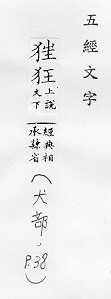 五經文字
𤝵狂上說文下經典相承隸省(犬部,P.38)